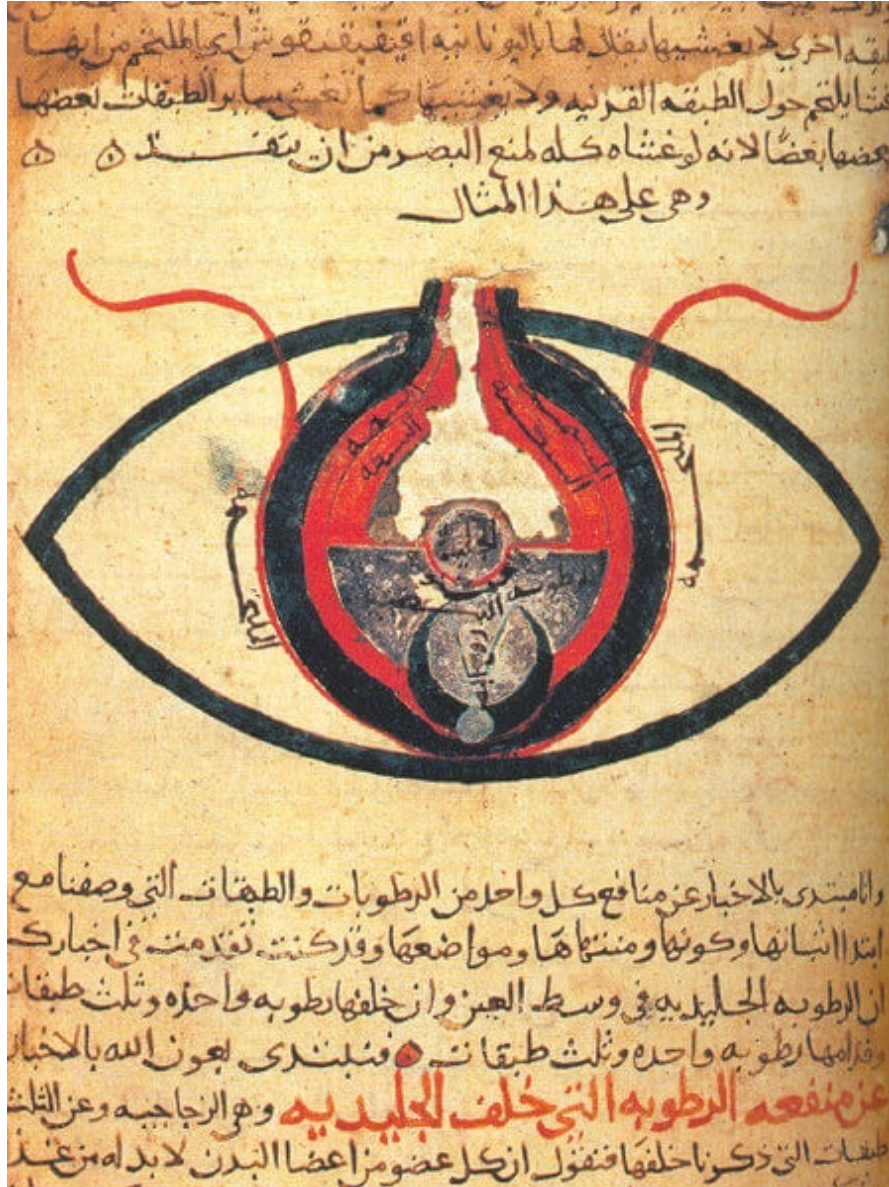 طبقه اخرى لا تغشيها يقال لها باليونانيه اى الملتحم من انها
حول الطبقه القرنيه ولا تغشيها كما تغشى ساير الطبقات بعضها
بعضا لانه لو غشاه كله لمنع البصر من ان ينفد
وهى على هذا المثال
الملتحمه
الملتحمه
الجليديه
وانا مبتدى بالاخبار عن منافع كل واحد من الرطوبات والطبقات التى وصفنا مع
ابتدا اثباتها وكونها ومنتهاها ومواضعها وقد كنت تقدمت فى اخبارك
ان الرطوبه الجليديه فى وسط العين وان خلفها رطوبه واحده وثلث طبقات
وقدامها رطوبه واحده وثلث طبقات فنبتدى بعون الله بالاخبار
عن منفعه الرطوبه التى خلف الجليديه وهى الزجاجيه وعن الثلث
طبقات التى ذكرنا خلفها فنقول ان كل عضو من اعضا البدن لا بد له من غذ